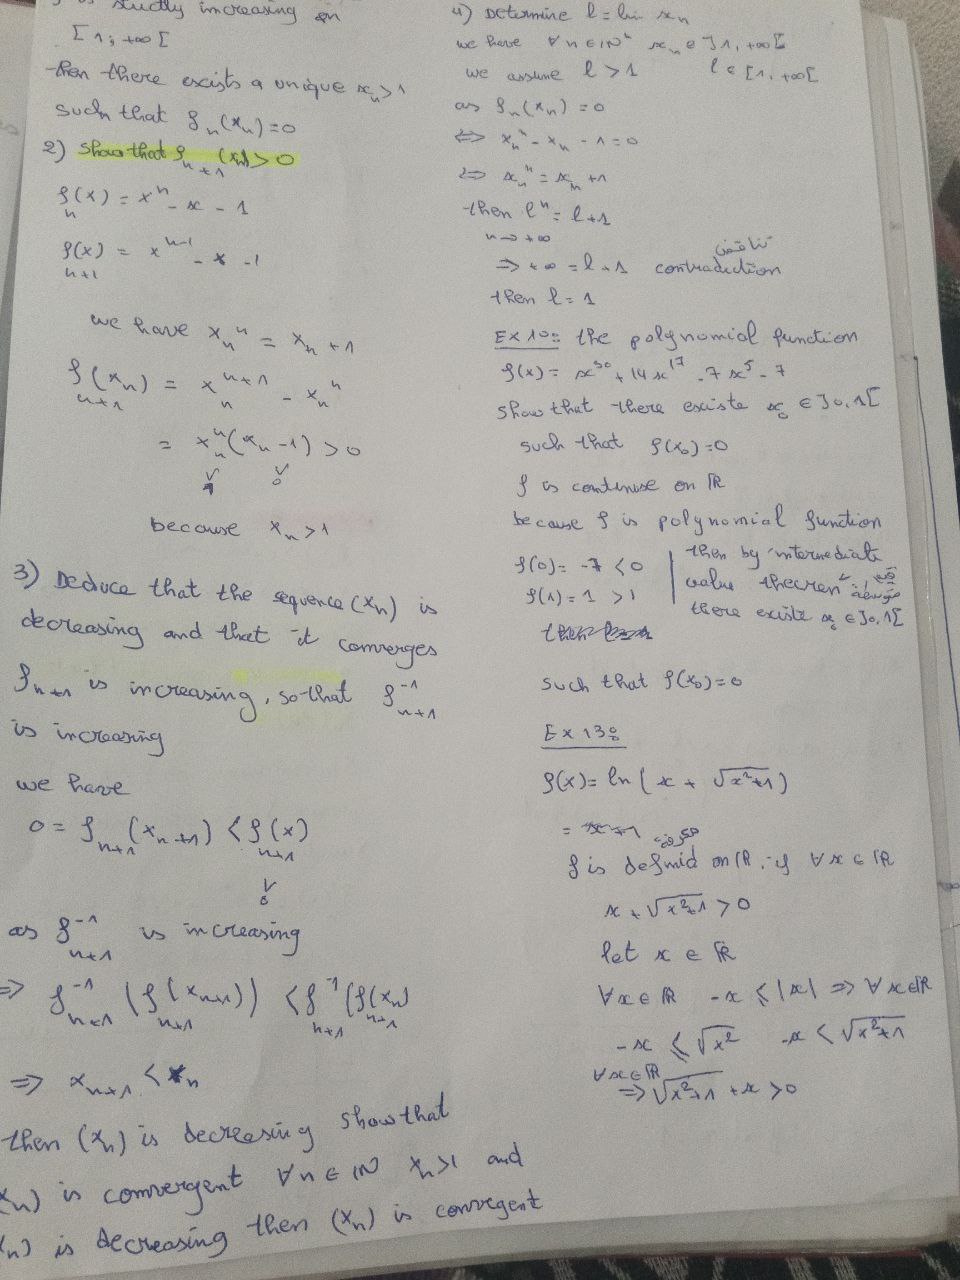 is strictly increasing on
[1; +∞[
then there exists a unique xₙ>1
such that fₙ(xₙ)=0
2) show that fₙ₊₁(xₙ)>0
fₙ(x) = xⁿ - x - 1
fₙ₊₁(x) = xⁿ⁻¹ - x - 1
we have xₙⁿ = xₙ+1
fₙ₊₁(xₙ) = xₙⁿ⁺¹ - xₙⁿ
= xₙⁿ(xₙ-1) > 0
because xₙ>1
3) Deduce that the sequence (xₙ) is
decreasing and that it converges
fₙ₊₁ is increasing, so that fₙ₊₁⁻¹
is increasing
we have
0 = fₙ₊₁(xₙ₊₁) < fₙ₊₁(x)
as fₙ₊₁⁻¹ is increasing
⇒ fₙ₊₁⁻¹(fₙ₊₁(xₙ₊₁)) < fₙ₊₁⁻¹(fₙ₊₁(xₙ)
⇒ xₙ₊₁ < xₙ
then (xₙ) is decreasing show that
(xₙ) is convergent ∀n∈ℕ xₙ>1 and
(xₙ) is decreasing then (xₙ) is convegent
4) Determine l = lim xₙ
we have ∀n∈ℕ* xₙ∈]1,+∞[
we assume l>1 l∈[1,+∞[
as fₙ(xₙ)=0
⇔ xₙⁿ - xₙ - 1 = 0
⇔ xₙⁿ = xₙ+1
then lⁿ = l+1
n→+∞
⇒ +∞ = l+1 contradiction تناقض
then l = 1
Ex 10: the polynomial function
f(x) = x³⁰ + 14x¹⁷ - 7x⁵ - 7
show that there existe x₀ ∈]0,1[
such that f(x₀)=0
f is continuse on ℝ
because f is polynomial function
f(0) = -7 < 0
f(1) = 1 > 1
then by intermediate
value theoren
there existe x₀ ∈]0,1[
such that f(x₀)=0
Ex 13:
f(x) = ln(x + √(x²+1))
معرفة
f is defind on ℝ if ∀x∈ℝ
x + √(x²+1) > 0
let x ∈ ℝ
∀x∈ℝ -x ≤ |x| ⇒ ∀x∈ℝ
-x ≤ √x² -x < √(x²+1)
∀x∈ℝ
⇒ √(x²+1) + x > 0